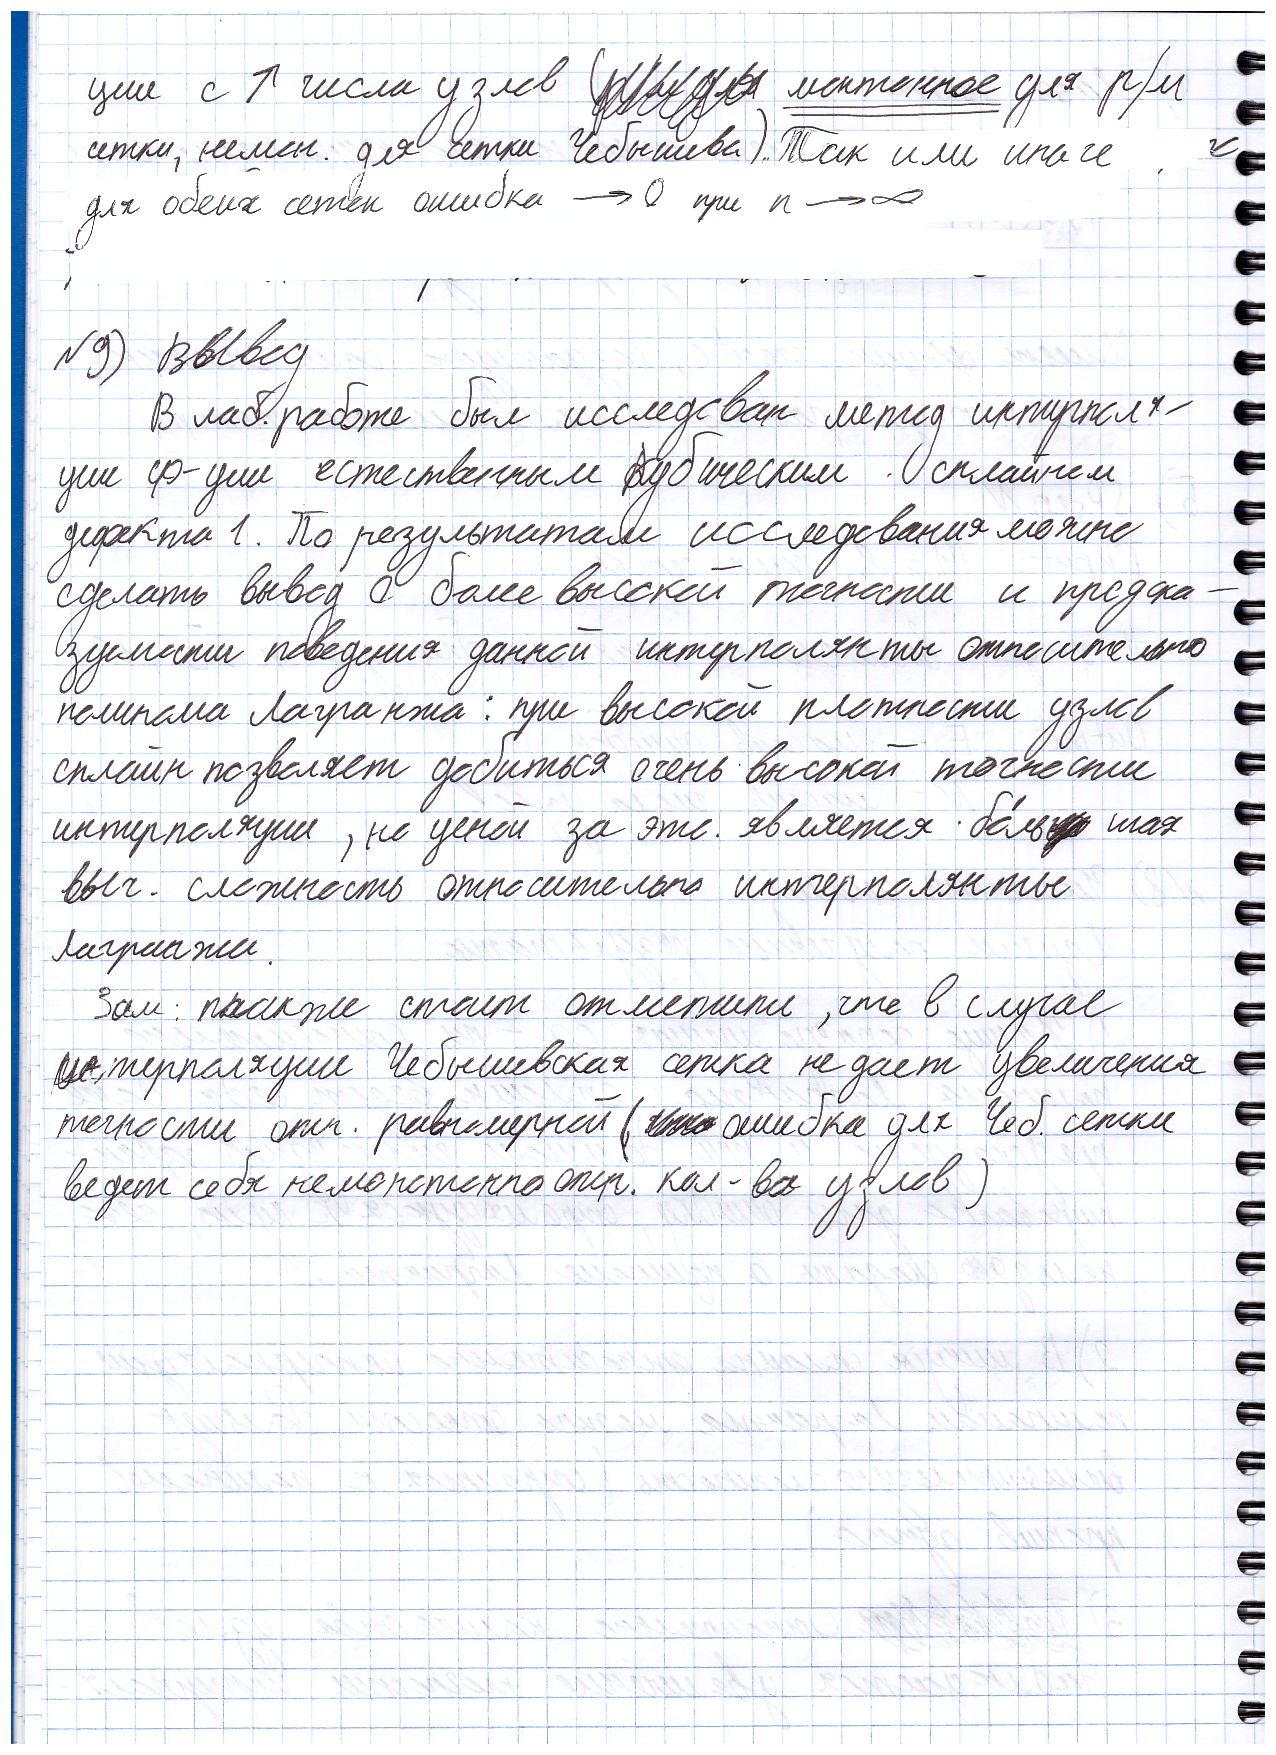 ции с ↑ числа узлов ( монотонное для р/м
сетки, немон. для сетки Чебышева). Так или иначе
для обеих сеток ошибка → 0 при n → ∞
№9) Вывод
В лаб. работе был исследован метод интерполя-
ции ф-ции естественным кубическим сплайном
дефекта 1. По результатам исследования можно
сделать вывод о более высокой точности и предска-
зуемости поведения данной интерполянты относительно
полинома Лагранжа: при высокой плотности узлов
сплайн позволяет добиться очень высокой точности
интерполяции, но ценой за это является бо́льшая
выч. сложность относительно интерполянты
Лагранжа.
Зам: также стоит отметить, что в случае
интерполяции Чебышевская сетка не дает увеличения
точности отн. равномерной ( ошибка для Чеб. сетки
ведет себя немонотонно отн. кол-ва узлов)